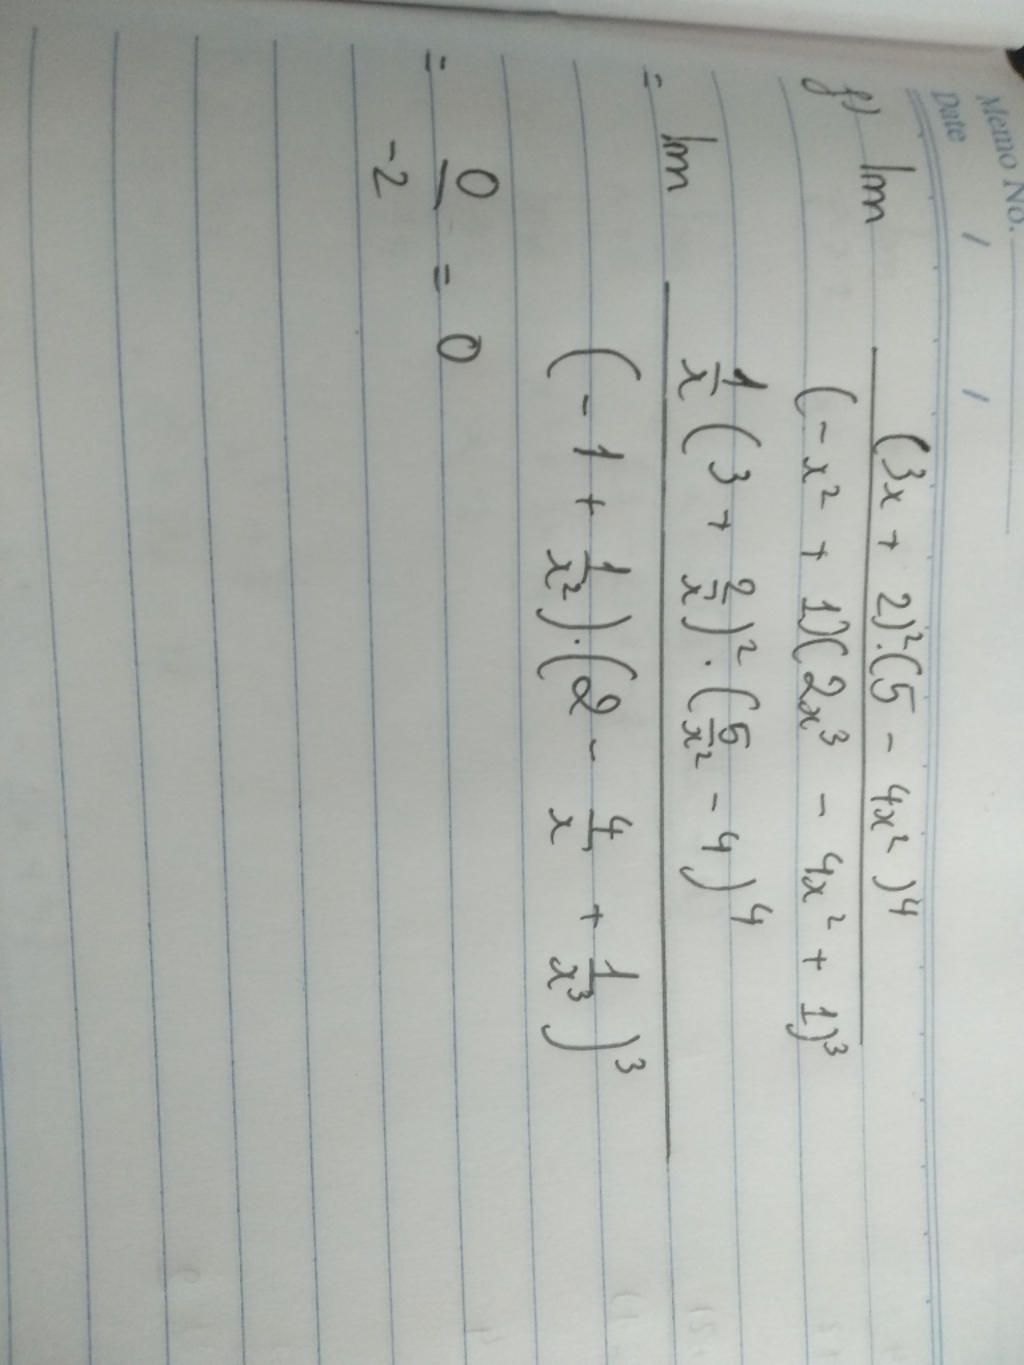 Memo No.
Date / /
f) lim (3x + 2)².(5 - 4x²)⁴ / (-x² + 1)(2x³ - 4x² + 1)³
= lim 1/x (3 + 2/x)² . (5/x² - 4)⁴ / (-1 + 1/x²).(2 - 4/x + 1/x³)³
= 0/-2 = 0